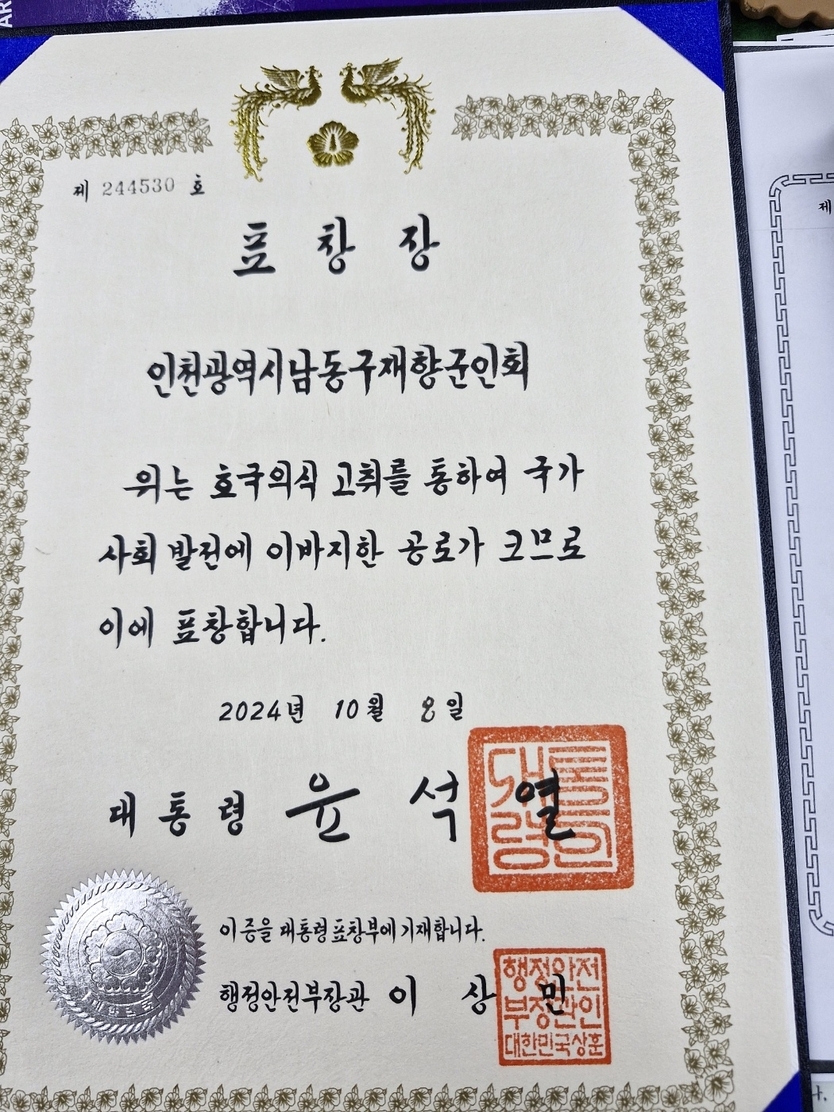 제 244530 호
표 창 장
인천광역시남동구재향군인회
위는 호국의식 고취를 통하여 국가
사회 발전에 이바지한 공로가 크므로
이에 표창합니다.
2024년 10월 8일
대 통 령 윤 석 열
대통령의인
이 증을 대통령표창부에 기재합니다.
행정안전부장관 이 상 민
행정안전
부장관인
대한민국상훈
제
AR